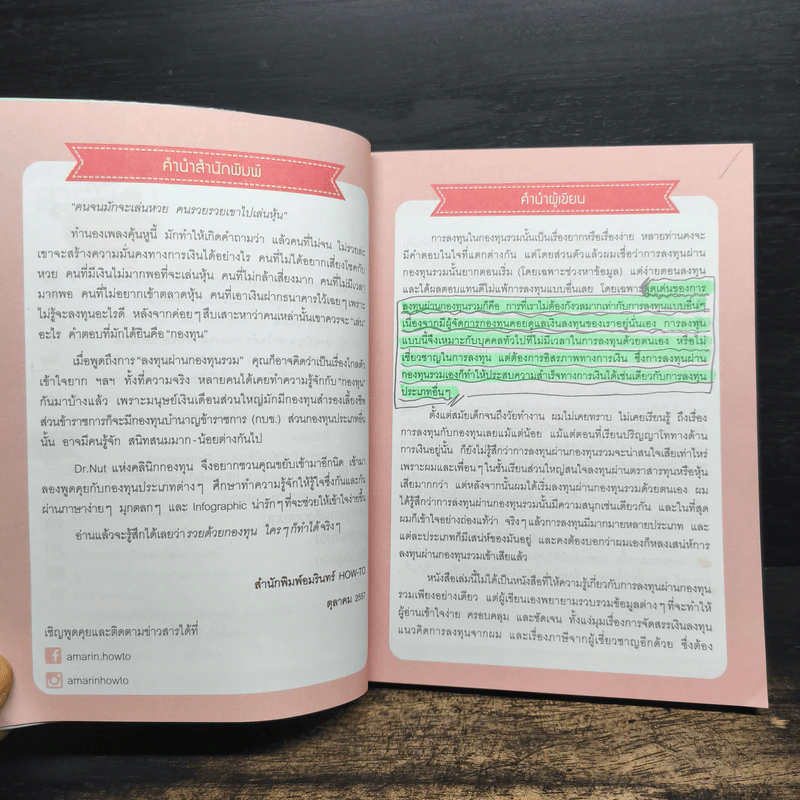 คำนำสำนักพิมพ์
"คนจนมักจะเล่นหวย คนรวยรวยเขาไปเล่นหุ้น"
ทำนองเพลงคุ้นหูนี้ มักทำให้เกิดคำถามว่า แล้วคนที่ไม่จน ไม่รวยล่ะ
เขาจะสร้างความมั่นคงทางการเงินได้อย่างไร คนที่ไม่ได้อยากเสี่ยงโชคกับ
หวย คนที่มีเงินไม่มากพอที่จะเล่นหุ้น คนที่ไม่กล้าเสี่ยงมาก คนที่ไม่มีเวลา
มากพอ คนที่ไม่อยากเข้าตลาดหุ้น คนที่เอาเงินฝากธนาคารไว้เฉยๆ เพราะ
ไม่รู้จะลงทุนอะไรดี หลังจากค่อยๆ สืบเสาะหาว่าคนเหล่านั้นเขาควรจะ "เล่น"
อะไร คำตอบที่มักได้ยินคือ "กองทุน"
เมื่อพูดถึงการ "ลงทุนผ่านกองทุนรวม" คุณก็อาจคิดว่าเป็นเรื่องไกลตัว
เข้าใจยาก ฯลฯ ทั้งที่ความจริง หลายคนได้เคยทำความรู้จักกับ "กองทุน"
กันมาบ้างแล้ว เพราะมนุษย์เงินเดือนส่วนใหญ่มักมีกองทุนสำรองเลี้ยงชีพ
ส่วนข้าราชการก็จะมีกองทุนบำนาญข้าราชการ (กบข.) ส่วนกองทุนประเภทอื่น
นั้น อาจมีคนรู้จัก สนิทสนมมาก-น้อยต่างกันไป
Dr.Nut แห่งคลินิกกองทุน จึงอยากชวนคุณขยับเข้ามาอีกนิด เข้ามา
ลองพูดคุยกับกองทุนประเภทต่างๆ ศึกษาทำความรู้จักให้รู้ใจซึ่งกันและกัน
ผ่านภาษาง่ายๆ มุกตลกๆ และ Infographic น่ารักๆ ที่จะช่วยให้เข้าใจง่ายขึ้น
อ่านแล้วจะรู้สึกได้เลยว่า รวยด้วยกองทุน ใครๆ ก็ทำได้จริงๆ
สำนักพิมพ์อมรินทร์ HOW-TO
ตุลาคม 2557
เชิญพูดคุยและติดตามข่าวสารได้ที่
amarin.howto
amarinhowto
คำนำผู้เขียน
การลงทุนในกองทุนรวมนั้นเป็นเรื่องยากหรือเรื่องง่าย หลายท่านคงจะ
มีคำตอบในใจที่แตกต่างกัน แต่โดยส่วนตัวแล้วผมเชื่อว่าการลงทุนผ่าน
กองทุนรวมนั้นยากตอนเริ่ม (โดยเฉพาะช่วงหาข้อมูล) แต่ง่ายตอนลงทุน
และได้ผลตอบแทนดีไม่แพ้การลงทุนแบบอื่นเลย โดยเฉพาะจุดเด่นของการ
ลงทุนผ่านกองทุนรวมก็คือ การที่เราไม่ต้องกังวลมากเท่ากับการลงทุนแบบอื่นๆ
เนื่องจากมีผู้จัดการกองทุนคอยดูแลเงินลงทุนของเราอยู่นั่นเอง การลงทุน
แบบนี้จึงเหมาะกับบุคคลทั่วไปที่ไม่มีเวลาในการลงทุนด้วยตนเอง หรือไม่
เชี่ยวชาญในการลงทุน แต่ต้องการอิสรภาพทางการเงิน ซึ่งการลงทุนผ่าน
กองทุนรวมเองก็ทำให้ประสบความสำเร็จทางการเงินได้เช่นเดียวกับการลงทุน
ประเภทอื่นๆ
ตั้งแต่สมัยเด็กจนถึงวัยทำงาน ผมไม่เคยทราบ ไม่เคยเรียนรู้ ถึงเรื่อง
การลงทุนกับกองทุนเลยแม้แต่น้อย แม้แต่ตอนที่เรียนปริญญาโททางด้าน
การเงินอยู่นั้น ก็ยังไม่รู้สึกว่าการลงทุนผ่านกองทุนรวมจะน่าสนใจเสียเท่าไหร่
เพราะผมและเพื่อนๆ ในชั้นเรียนส่วนใหญ่สนใจลงทุนผ่านตราสารทุนหรือหุ้น
เสียมากกว่า แต่หลังจากนั้นผมได้เริ่มลงทุนผ่านกองทุนรวมด้วยตนเอง ผม
ได้รู้สึกว่าการลงทุนผ่านกองทุนรวมนั้นมีความสนุกเช่นเดียวกัน และในที่สุด
ผมก็เข้าใจอย่างถ่องแท้ว่า จริงๆ แล้วการลงทุนมีมากมายหลายประเภท และ
แต่ละประเภทก็มีเสน่ห์ของมันอยู่ และคงต้องบอกว่าผมเองก็หลงเสน่ห์การ
ลงทุนผ่านกองทุนรวมเข้าเสียแล้ว
หนังสือเล่มนี้ไม่ได้เป็นหนังสือที่ให้ความรู้เกี่ยวกับการลงทุนผ่านกองทุน
รวมเพียงอย่างเดียว แต่ผู้เขียนเองพยายามรวบรวมข้อมูลต่างๆ ที่จะทำให้
ผู้อ่านเข้าใจง่าย ครอบคลุม และชัดเจน ทั้งแง่มุมเรื่องการจัดสรรเงินลงทุน
แนวคิดการลงทุนจากผม และเรื่องภาษีจากผู้เชี่ยวชาญอีกด้วย ซึ่งต้อง